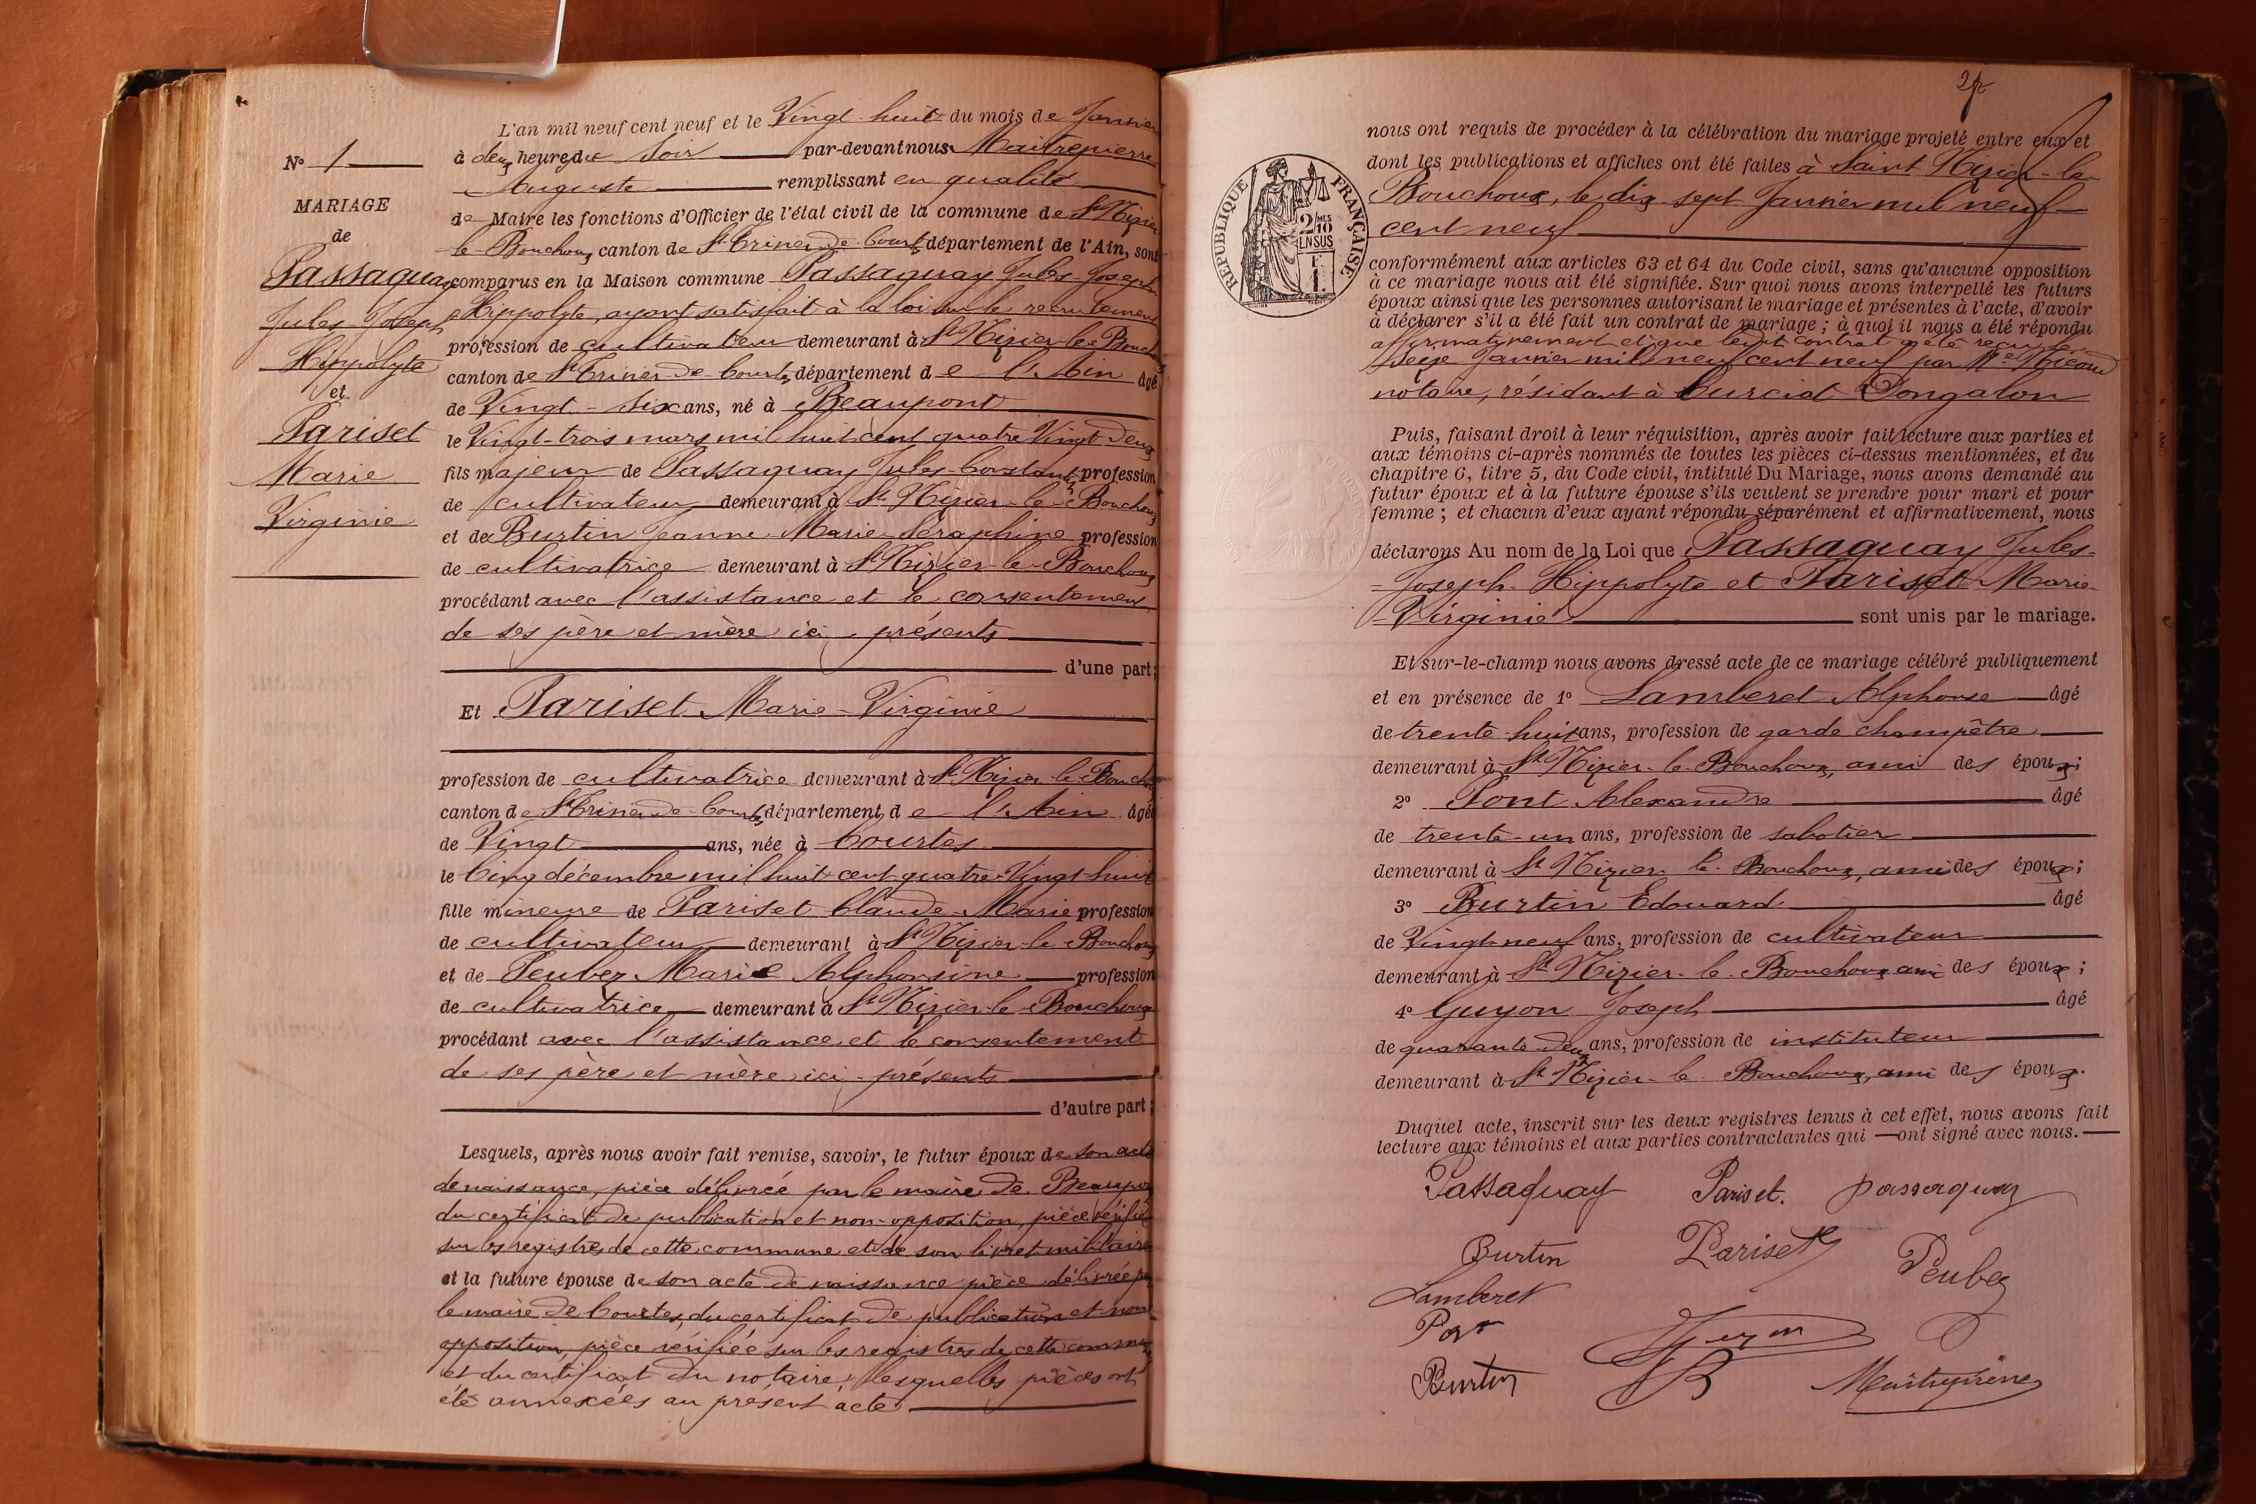 L'an mil neuf cent neuf et le Vingt-huit du mois de Janvier
N° 1
à deux heures du soir par-devant nous Maitrepierre
Auguste remplissant en qualité
MARIAGE
de Maire les fonctions d'Officier de l'état civil de la commune de St Nizier
de
le Bouchoux, canton de St Trivier-de-Courtes, département de l'Ain, sont
Passaquay
comparus en la Maison commune Passaquay Jules-Joseph
Jules Joseph
Hippolyte, ayant satisfait à la loi sur le recrutement
profession de cultivateur demeurant à St Nizier-le-Bouchoux
Hippolyte
canton de St Trivier-de-Courtes, département de l'Ain âgé
et
de Vingt-six ans, né à Beaupont
Pariset
le Vingt-trois mars mil huit cent quatre Vingt-deux
Marie
fils majeur de Passaquay Jules-Constant, profession
Virginie
de cultivateur demeurant à St Nizier-le-Bouchoux
et de Burtin Jeanne-Marie-Séraphine profession
de cultivatrice demeurant à St Nizier-le-Bouchoux
procédant avec l'assistance et le consentement
de ses père et mère ici présents
d'une part;
Et Pariset Marie-Virginie
profession de cultivatrice demeurant à St Nizier-le-Bouchoux
canton de St Trivier-de-Courtes, département de l'Ain âgée
de Vingt ans, née à Courtes
le Cinq décembre mil huit cent quatre-Vingt-huit
fille mineure de Pariset Claude-Marie profession
de cultivateur demeurant à St Nizier-le-Bouchoux
et de Peubez Marie Alphonsine profession
de cultivatrice demeurant à St Nizier-le-Bouchoux
procédant avec l'assistance et le consentement
de ses père et mère ici présents
d'autre part;
Lesquels, après nous avoir fait remise, savoir, le futur époux de son acte
de naissance, pièce délivrée par le maire de Beaupont
du certificat de publication et non-opposition, pièce vérifiée
sur les registres de cette commune et de son livret militaire
et la future épouse de son acte de naissance pièce délivrée par
le maire de Courtes, du certificat de publication et non
opposition, pièce vérifiée sur les registres de cette commune
et du certificat du notaire; lesquelles pièces ont
été annexées au présent acte
nous ont requis de procéder à la célébration du mariage projeté entre eux et
dont les publications et affiches ont été faites à Saint Nizier-le-
Bouchoux, le dix-sept Janvier mil neuf
cent neuf
RÉPUBLIQUE FRANÇAISE
2/10 EN SUS
conformément aux articles 63 et 64 du Code civil, sans qu'aucune opposition
à ce mariage nous ait été signifiée. Sur quoi nous avons interpellé les futurs
époux ainsi que les personnes autorisant le mariage et présentes à l'acte, d'avoir
à déclarer s'il a été fait un contrat de mariage; à quoi il nous a été répondu
affirmativement et que ledit contrat a été reçu le
seize Janvier mil neuf cent neuf par Me
notaire, résidant à Curciat Dongalon
Puis, faisant droit à leur réquisition, après avoir fait lecture aux parties et
aux témoins ci-après nommés de toutes les pièces ci-dessus mentionnées, et du
chapitre 6, titre 5, du Code civil, intitulé Du Mariage, nous avons demandé au
futur époux et à la future épouse s'ils veulent se prendre pour mari et pour
femme; et chacun d'eux ayant répondu séparément et affirmativement, nous
déclarons Au nom de la Loi que Passaquay Jules-
Joseph-Hippolyte et Pariset Marie-
Virginie sont unis par le mariage.
Et sur-le-champ nous avons dressé acte de ce mariage célébré publiquement
et en présence de 1° Lamberet Alphonse âgé
de trente-huit ans, profession de garde champêtre
demeurant à St Nizier-le-Bouchoux, ami des époux;
2° Pont Alexandre âgé
de trente-un ans, profession de sabotier
demeurant à St Nizier-le-Bouchoux, ami des époux;
3° Burtin Edouard âgé
de Vingt-neuf ans, profession de cultivateur
demeurant à St Nizier-le-Bouchoux ami des époux;
4° Guyon Joseph âgé
de quarante-deux ans, profession de instituteur
demeurant à St Nizier-le-Bouchoux, ami des époux.
Duquel acte, inscrit sur les deux registres tenus à cet effet, nous avons fait
lecture aux témoins et aux parties contractantes qui ont signé avec nous.
Passaquay Pariset. passaquay
Burtin Pariset Peubez
Lamberet
Pont Guyon
Burtin Maitrepierre